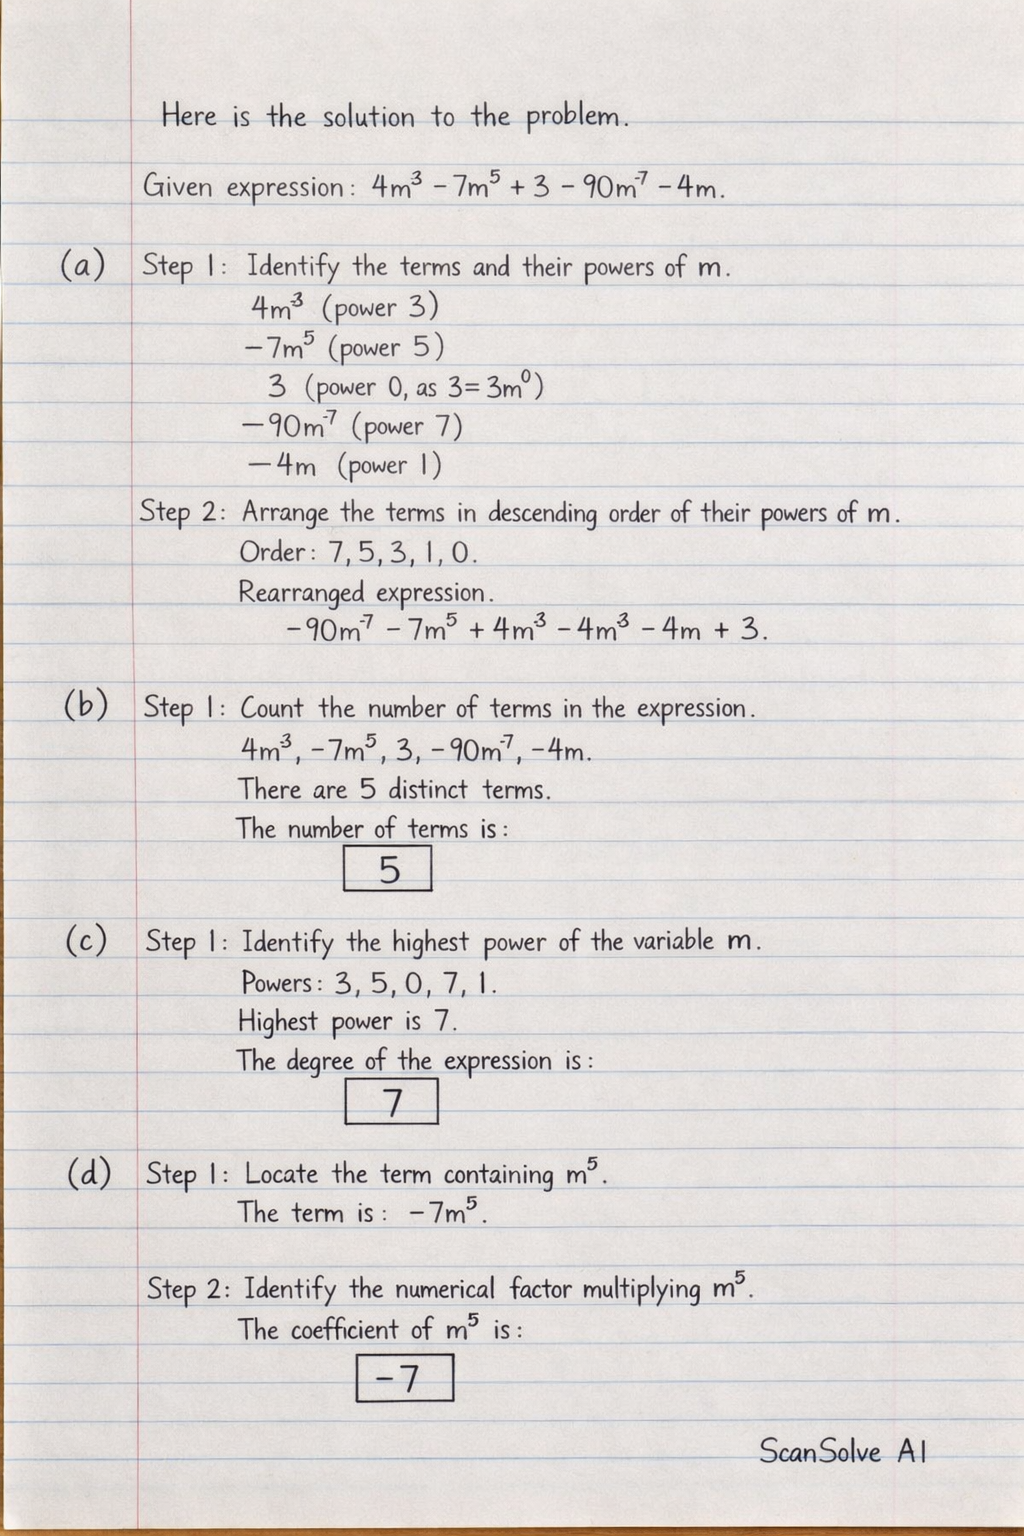 Here is the solution to the problem.
Given expression: 4m³ − 7m⁵ + 3 − 90m⁻⁷ − 4m.
(a) Step 1: Identify the terms and their powers of m.
4m³ (power 3)
−7m⁵ (power 5)
3 (power 0, as 3=3m⁰)
−90m⁻⁷ (power 7)
−4m (power 1)
Step 2: Arrange the terms in descending order of their powers of m.
Order: 7, 5, 3, 1, 0.
Rearranged expression.
−90m⁻⁷ − 7m⁵ + 4m³ − 4m³ − 4m + 3.
(b) Step 1: Count the number of terms in the expression.
4m³, −7m⁵, 3, −90m⁻⁷, −4m.
There are 5 distinct terms.
The number of terms is:
5
(c) Step 1: Identify the highest power of the variable m.
Powers: 3, 5, 0, 7, 1.
Highest power is 7.
The degree of the expression is:
7
(d) Step 1: Locate the term containing m⁵.
The term is: −7m⁵.
Step 2: Identify the numerical factor multiplying m⁵.
The coefficient of m⁵ is:
−7
ScanSolve AI